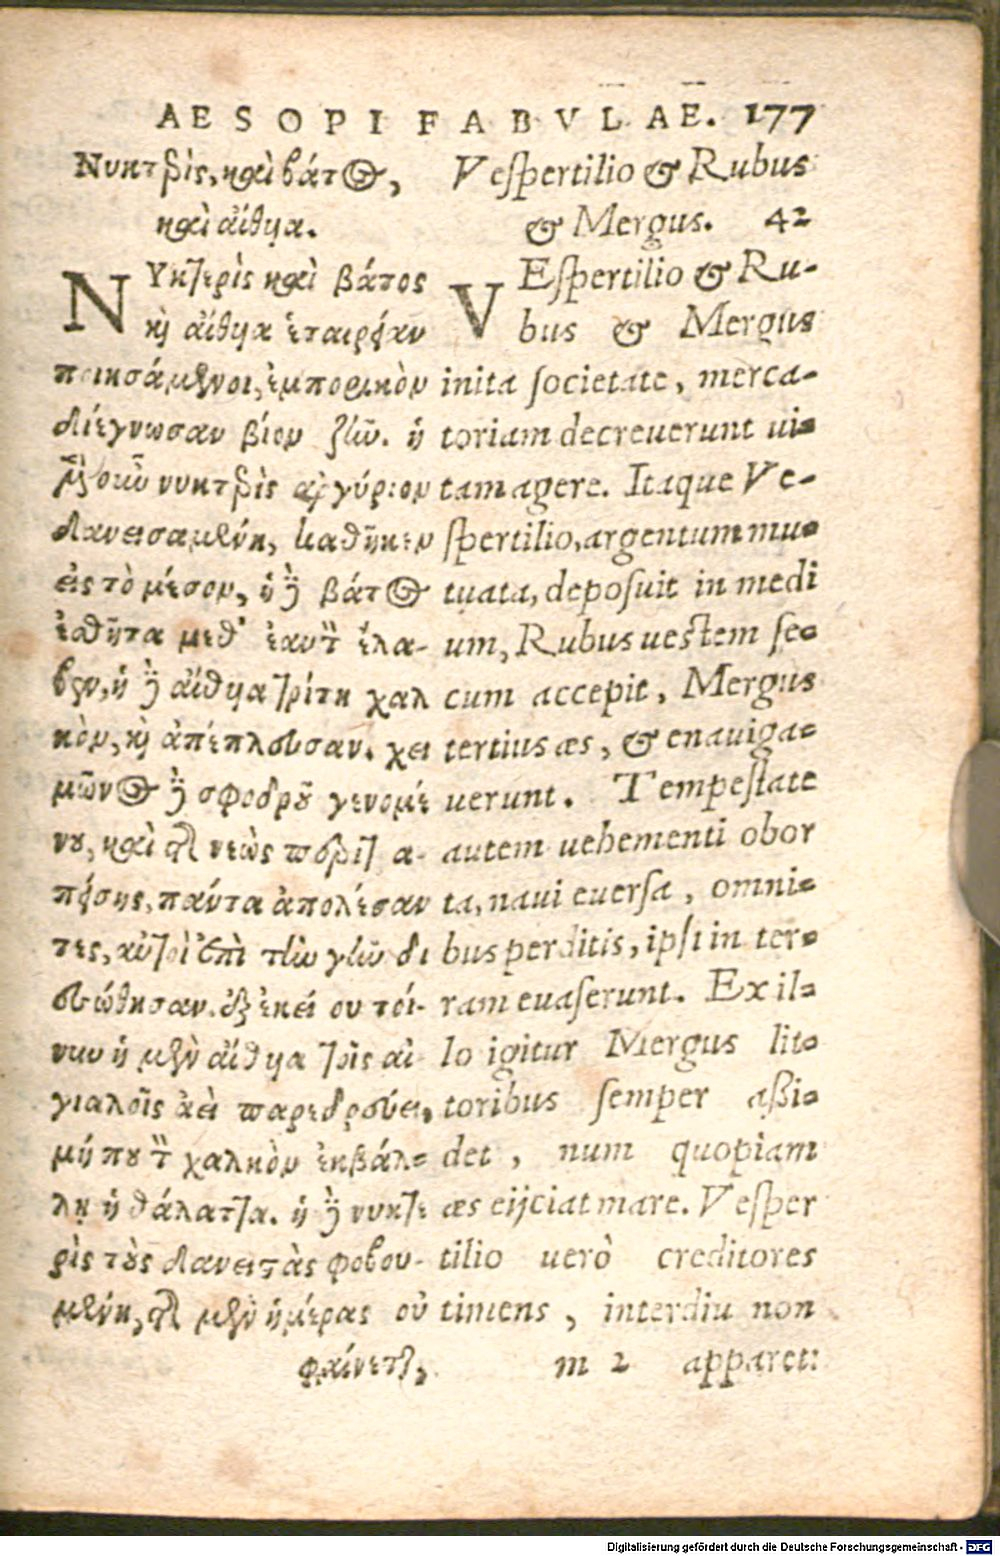 AESOPI FABVLAE. 177
Νυκτερὶς, καὶ βάτος,
καὶ αἴθυα.
ΝΥκτερὶς καὶ βάτος
καὶ αἴθυα ἑταιρείαν
ποιησάμενοι, ἐμπορικὸν
διέγνωσαν βίον ζῆν. ἡ
μὲν οὖν νυκτερὶς ἀργύριον
δανεισαμένη, καθῆκεν
εἰς τὸ μέσον, ἡ δὲ βάτος
ἐσθῆτα μεθ' ἑαυτῆς ἔλα-
βεν, ἡ δὲ αἴθυα τρίτη χαλ
κὸν, καὶ ἀπέπλευσαν. χει
μῶνος δὲ σφοδροῦ γενομέ
νου, καὶ τῆς νεὼς περιτρα-
πείσης, πάντα ἀπολέσαν
τες, αὐτοὶ ἐπὶ τὴν γῆν δι
εσώθησαν. ἐξ ἐκεί ου τοί-
νυν ἡ μὲν αἴθυα τοῖς αἰ
γιαλοῖς ἀεὶ παρεδρεύει,
μή που τὸν χαλκὸν ἐκβάλ-
λῃ ἡ θάλαττα. ἡ δὲ νυκτε
ρὶς τοὺς δανειστὰς φοβου-
μένη, τῆς μὲν ἡμέρας οὐ
φαίνεται,
Veſpertilio & Rubus
& Mergus. 42
VEſpertilio & Ru-
bus & Mergus
inita ſocietate, merca-
toriam decreuerunt ui-
tam agere. Itaque Ve-
ſpertilio, argentum mu-
tuata, depoſuit in medi
um, Rubus ueſtem ſe-
cum accepit, Mergus
tertius æs, & enauiga-
uerunt. Tempeſtate
autem uehementi obor
ta, naui euerſa, omni-
bus perditis, ipſi in ter-
ram euaſerunt. Ex il-
lo igitur Mergus lit-
toribus ſemper aßi-
det, num quopiam
æs eijciat mare. Veſper
tilio uerò creditores
timens, interdiu non
m 2 apparet:
Digitalisierung gefördert durch die Deutsche Forschungsgemeinschaft - DFG